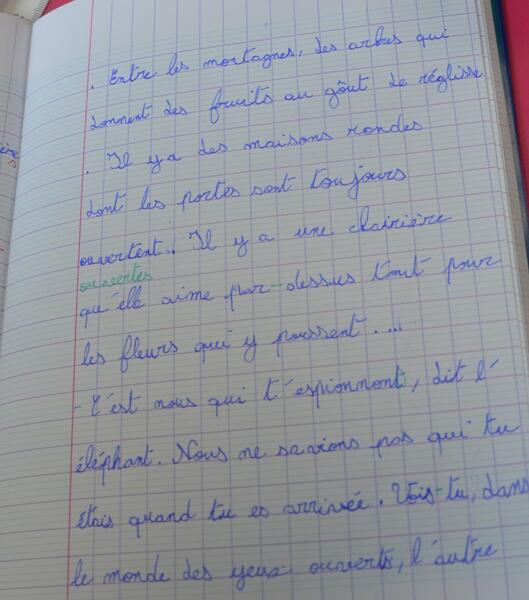 . Entre les montagnes, des arbres qui
donnent des fruits au goût de réglisse
. Il y a des maisons rondes
dont les portes sont toujours
ouvertent. Il y a une clairière
ouvertes
qu'elle aime par-dessus tout pour
les fleurs qui y poussent....
- C'est nous qui t'espionnont, dit l'
éléphant. Nous ne savions pas qui tu
étais quand tu es arrivée. Vois-tu, dans
le monde des yeux ouverts, l'autre